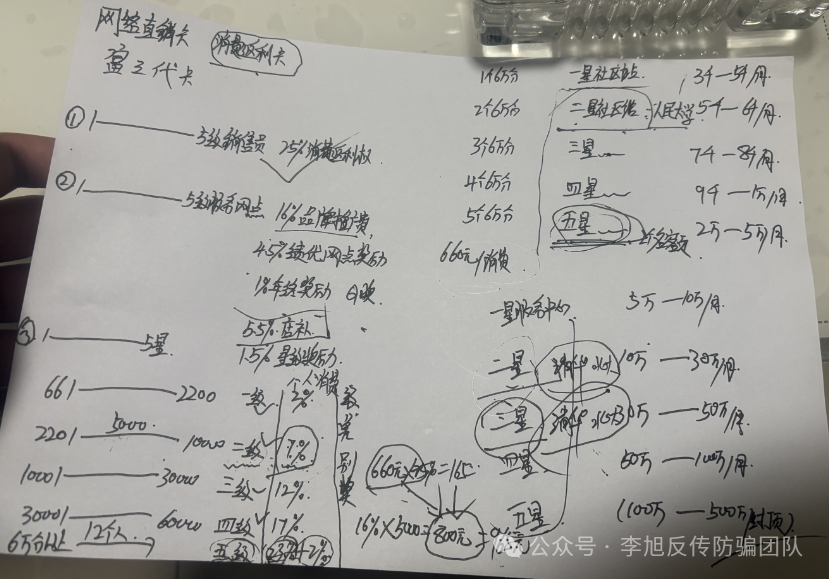 网络直销卡 消费返利卡
富之代卡
① 1——5级销售员 25%消费返利权
② 1——5级服务网点
16%品牌推广费
4.5%绩优网点奖励
1%年终奖励
③ 1——5星 5.5%店补
1.5%星级奖励
个人消费
661——2200 一级 2%
级差别
5000
2201——10000 二级 7%
10001——30000 三级 12%
30001——60000 四级 17%
6万分以上 12个人 五级 2%
660元×25%=165
16%×5000=800元
1个6万分 一星社区网点 3千—5千/月
2个6万分 二星社区 人民大学 5千—6千/月
3个6万分 三星 7千—8千/月
4个6万分 四星 9千—1万/月
5个6万分 五星 2万—5万/月
660元/消费
一星服务中心 5万—10万/月
二星 清华 10万—30万/月
三星 清华 —50万/月
四星 60万—100万/月
五星 (100万—500万封顶)
公众号·李旭反传防骗团队